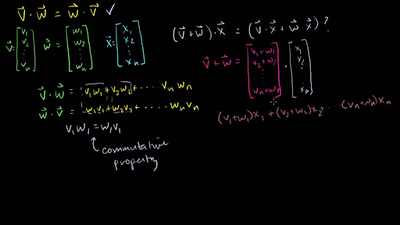 v⃗ · w⃗ = w⃗ · v⃗ ✓
v⃗: [v₁ v₂ ⋮ vₙ] w⃗ = [w₁ w₂ ⋮ wₙ] x⃗ = [x₁ x₂ ⋮ xₙ]
v⃗ · w⃗ = v₁w₁ + v₂w₂ + ······ vₙwₙ
w⃗ · v⃗ = w₁v₁ + w₂v₂ + ······ wₙvₙ
v₁w₁ = w₁v₁
commutative
property
(v⃗ + w⃗) · x⃗ = (v⃗ · x⃗ + w⃗ · x⃗) ?
v⃗ + w⃗ = [v₁+w₁ v₂+w₂ ⋮ vₙ+wₙ] · [x₁ x₂ ⋮ xₙ]
(v₁+w₁)x₁ + (v₂+w₂)x₂ ··· (vₙ+wₙ)xₙ